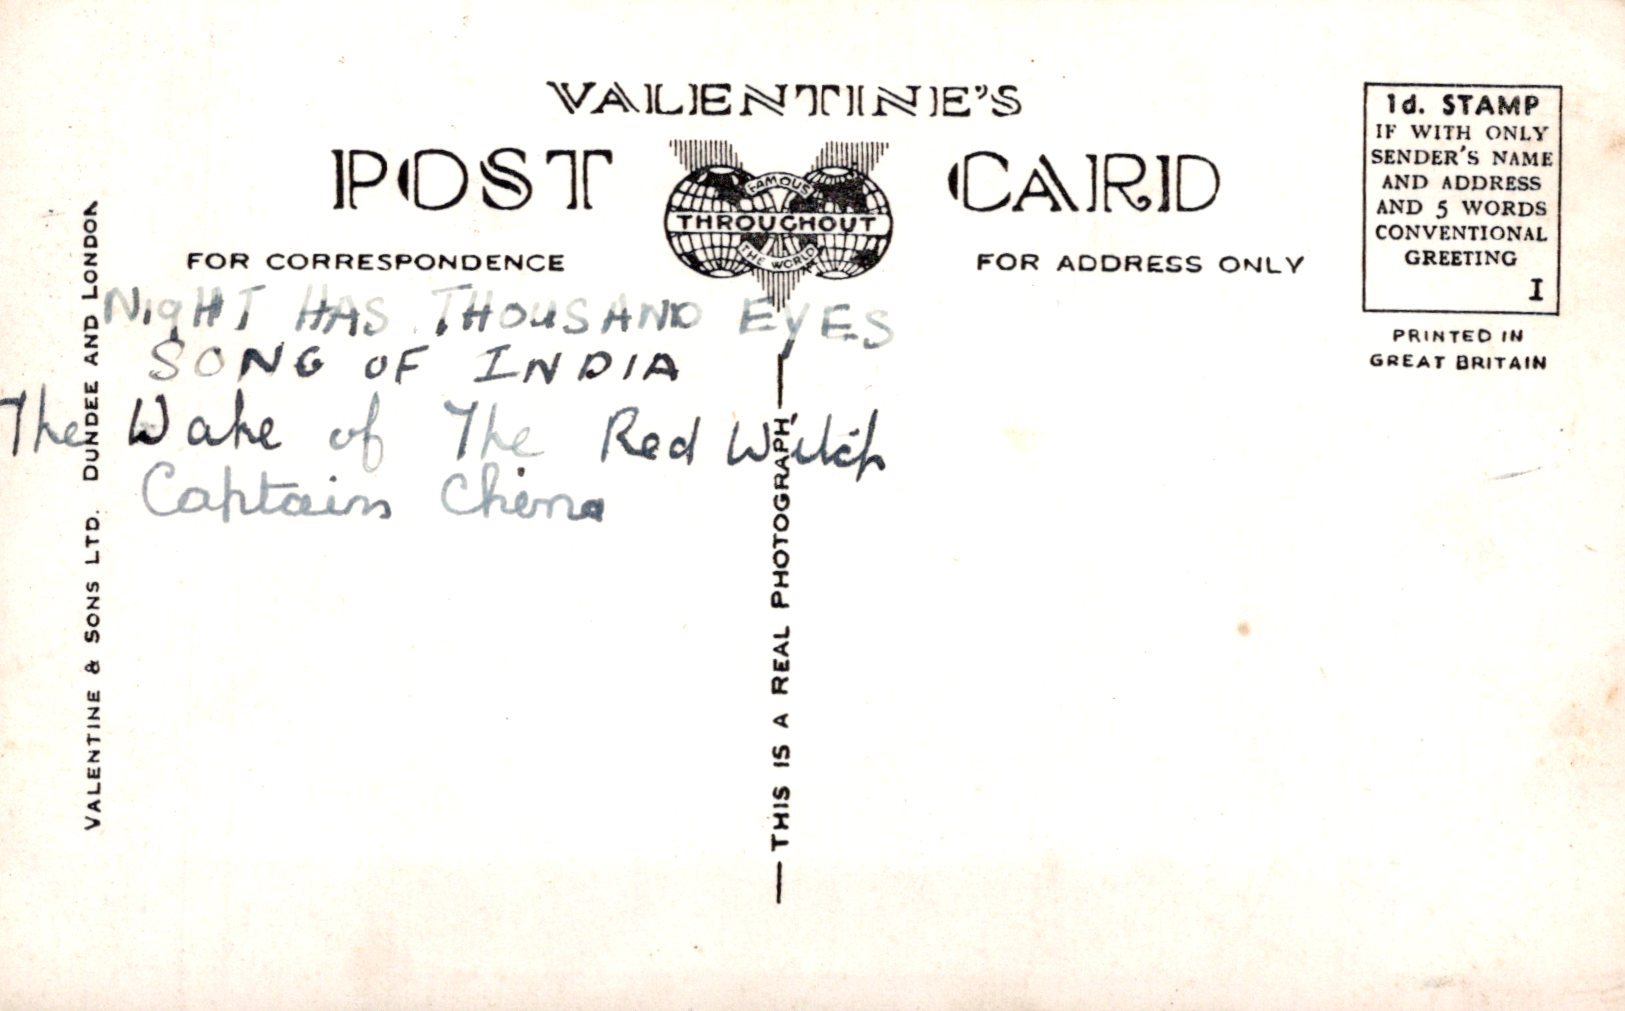 VALENTINE'S
POST CARD
FAMOUS
THROUGHOUT
THE WORLD
FOR CORRESPONDENCE
FOR ADDRESS ONLY
1d. STAMP
IF WITH ONLY
SENDER'S NAME
AND ADDRESS
AND 5 WORDS
CONVENTIONAL
GREETING
I
PRINTED IN
GREAT BRITAIN
NIGHT HAS THOUSAND EYES
SONG OF INDIA
The Wake of The Red Witch
Captain China
VALENTINE & SONS LTD. DUNDEE AND LONDON
THIS IS A REAL PHOTOGRAPH